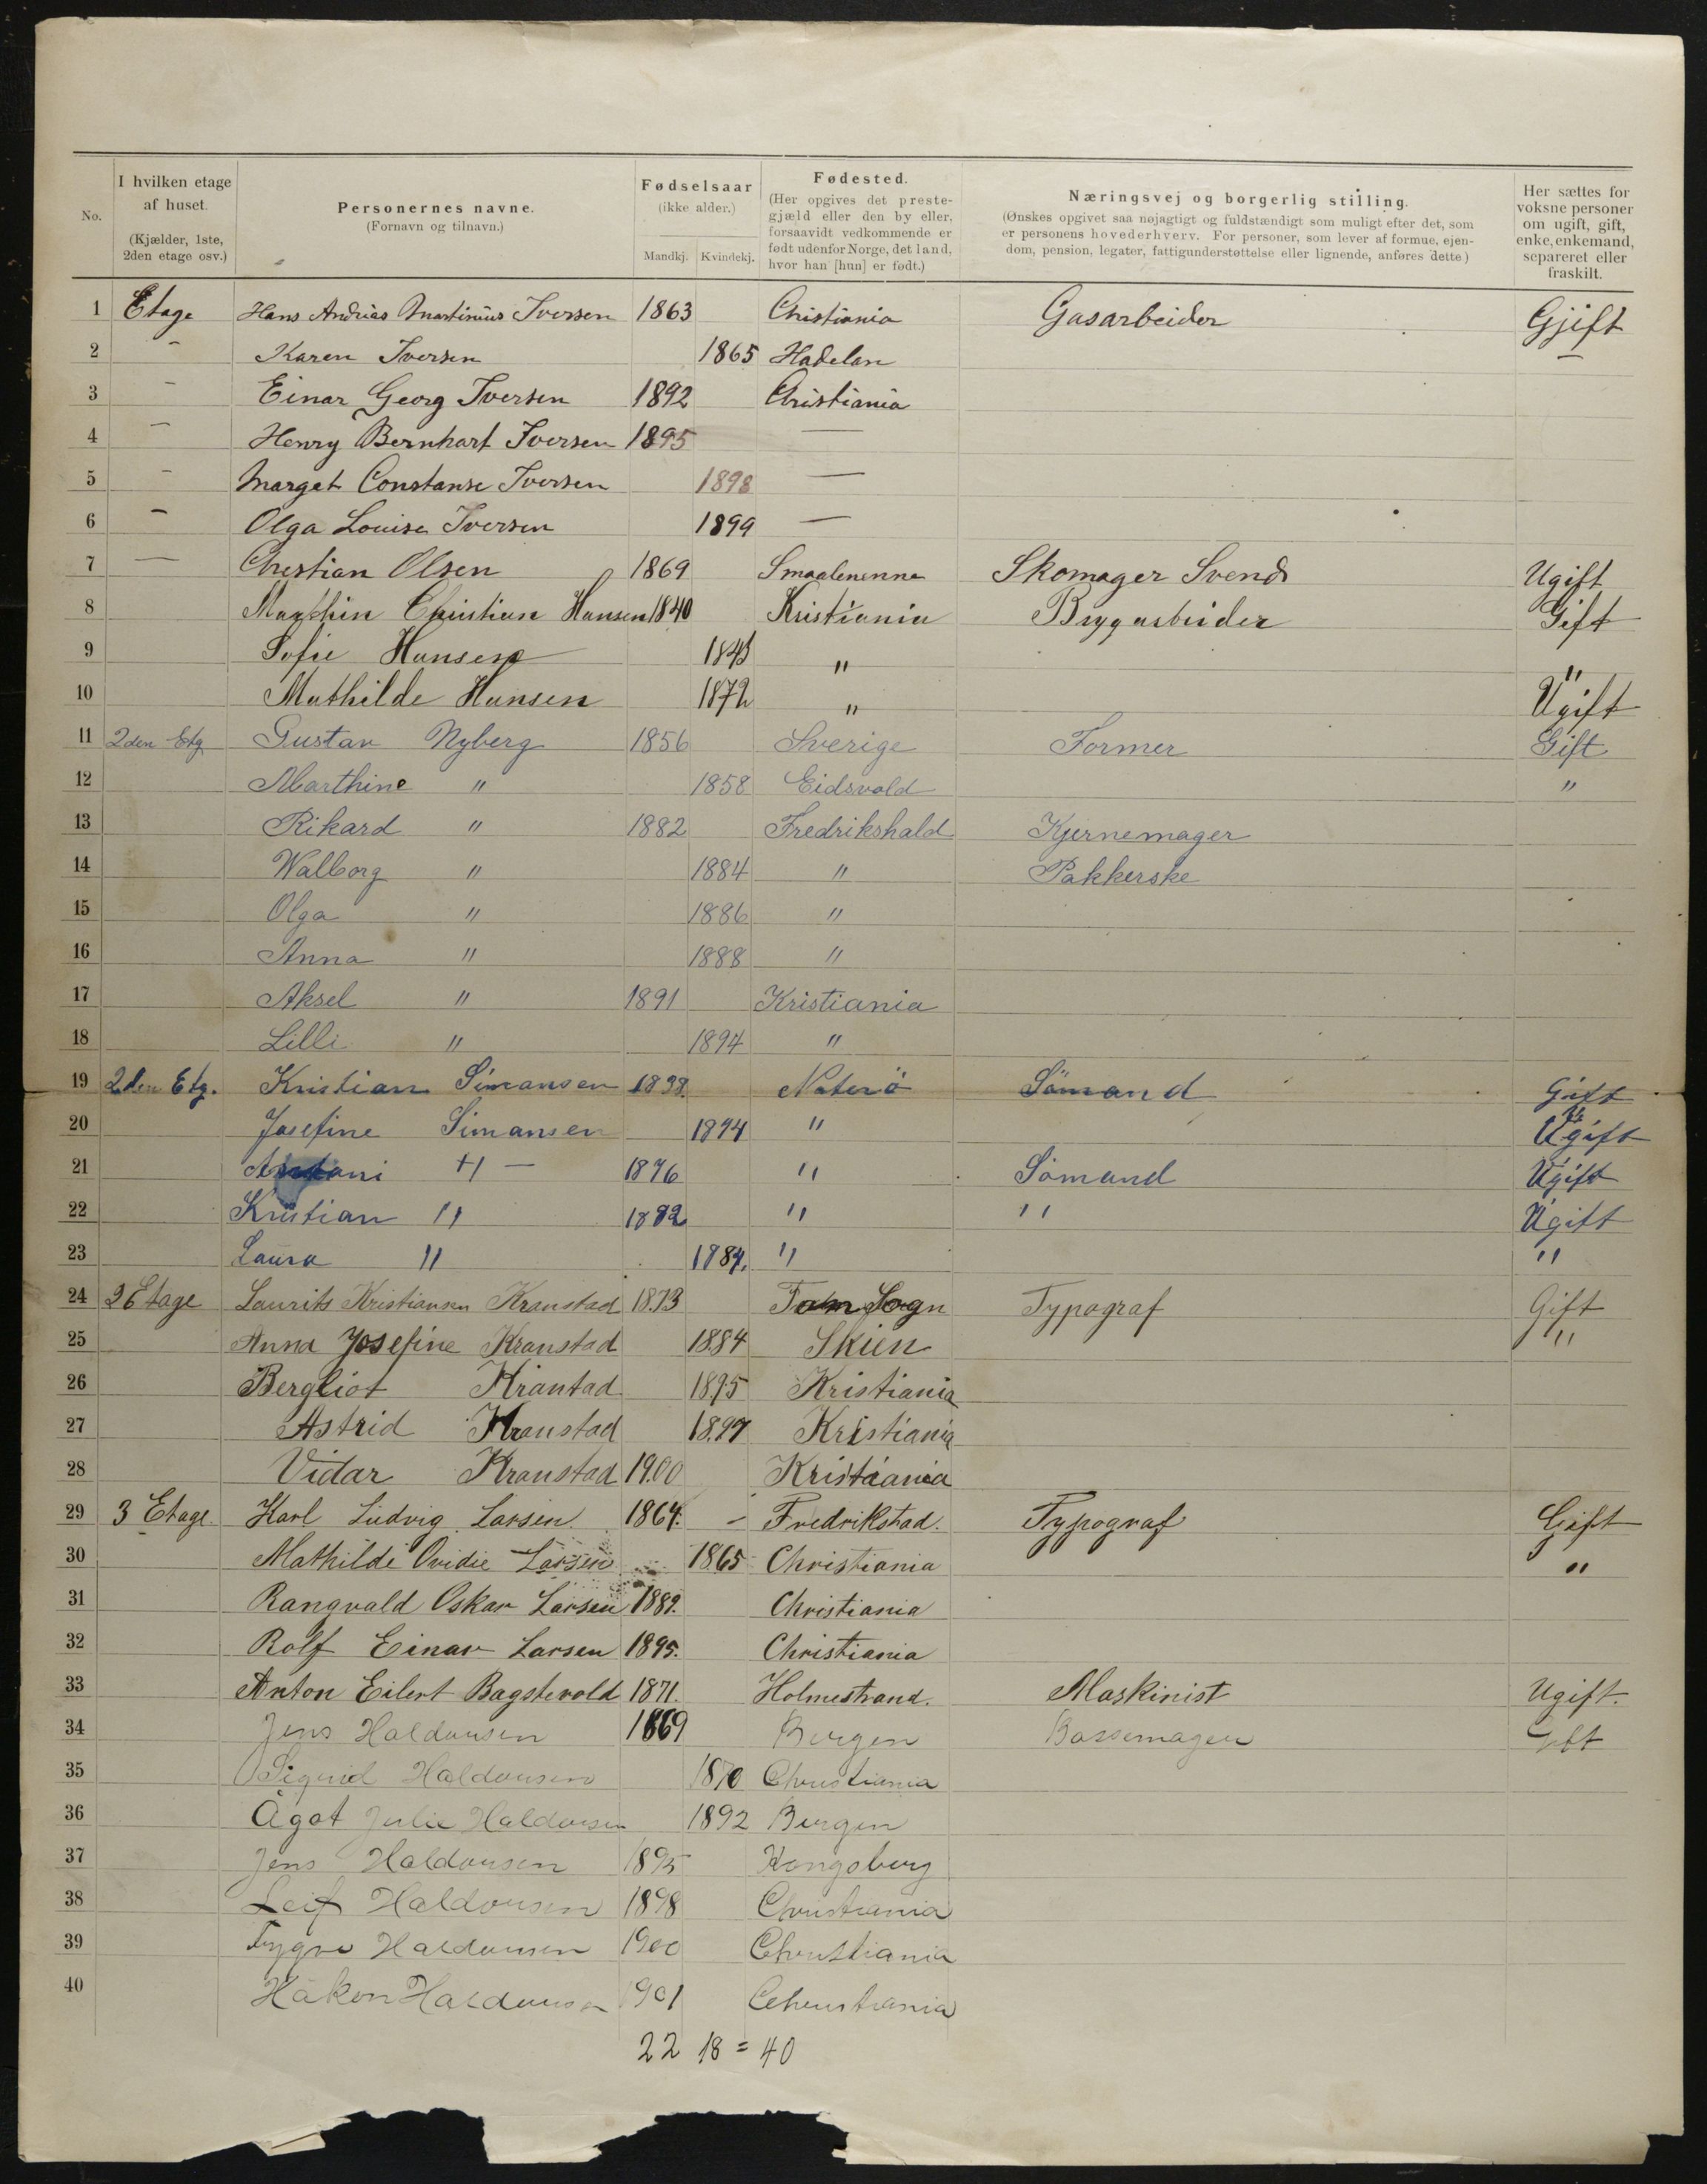 No. | I hvilken etage af huset. (Kjælder, 1ste, 2den etage osv.) | Personernes navne. (Fornavn og tilnavn.) | Fødselsaar (ikke alder.) Mandkj. Kvindekj. | Fødested. (Her opgives det prestegjæld eller den by eller, forsaavidt vedkommende er født udenfor Norge, det land, hvor han [hun] er født.) | Næringsvej og borgerlig stilling. (Ønskes opgivet saa nøjagtigt og fuldstændigt som muligt efter det, som er personens hovederhverv. For personer, som lever af formue, ejendom, pension, legater, fattigunderstøttelse eller lignende, anføres dette) | Her sættes for voksne personer om ugift, gift, enke, enkemand, separeret eller fraskilt.
1 Etage Hans Andrias Martinius Iversen 1863 Christiania Gasarbeider Gjift
2 - Karen Iversen 1865 Hadelan —
3 - Einar Georg Iversen 1892 Christiania
4 — Henry Bernhart Iversen 1895 —
5 - Marget Constanse Iversen 1898 —
6 - Olga Louise Iversen 1899 —
7 — Chrestian Olsen 1869 Smaalenenne Skomager Svend Ugift
8 Marthin Christian Hansen 1840 Kristiania Brygarbeider Gift
9 Sofie Hansen " "
10 Mathilde Hansen 1872 " Ugift
11 2den Etg Gustav Nyberg 1856 Sverige Former Gift
12 Marthine " 1858 Eidsvold "
13 Rikard " 1882 Fredrikshald Kjernemager
14 Walborg " 1884 " Pakkerske
15 Olga " 1886 "
16 Anna " 1888 "
17 Aksel " 1891 Kristiania
18 Lilli " 1894 "
19 2den Etg. Kristian Simansen 1838 Nøterö Sömand Gift
20 Josefine Simansen 1874 " Ugift
21 1876 " Sömand Ugift
22 Kristian " 1882 " " Ugift
23 Laura " 1884. " "
24 Etage Laurits Kristiansen Kranstad 1873 Sogn Typograf Gift
25 Anna Josefine Kranstad Skien "
26 Bergliot Kranstad 1895 Kristiania
27 Astrid Kranstad 1897 Kristiania
28 Vidar Kranstad 1900 Kristiania
29 3 Etage Karl Ludvig Larsen 1864. - Fredrikstad. Typograf Gift
30 Mathilde Ovidie Larsen 1865 Christiania "
31 Rangvald Oskar Larsen 1889. Christiania
32 Rolf Einar Larsen 1895. Christiania
33 Anton Eilert Bagstevold 1871. Holmestrand. Maskinist Ugift.
34 Jens Haldorsen 1869 Bergen Bøssemager Gift
35 Sigrid Haldorsen 1870 Christiania
36 Ågot Julie Haldorsen 1892 Bergen
37 Jens Haldorsen 1895 Kongsberg
38 Leif Haldorsen 1898 Christiania
39 Trygve Haldorsen 1900 Christiania
40 Håkon Haldorsen 1901 Christiania
22 18 = 40